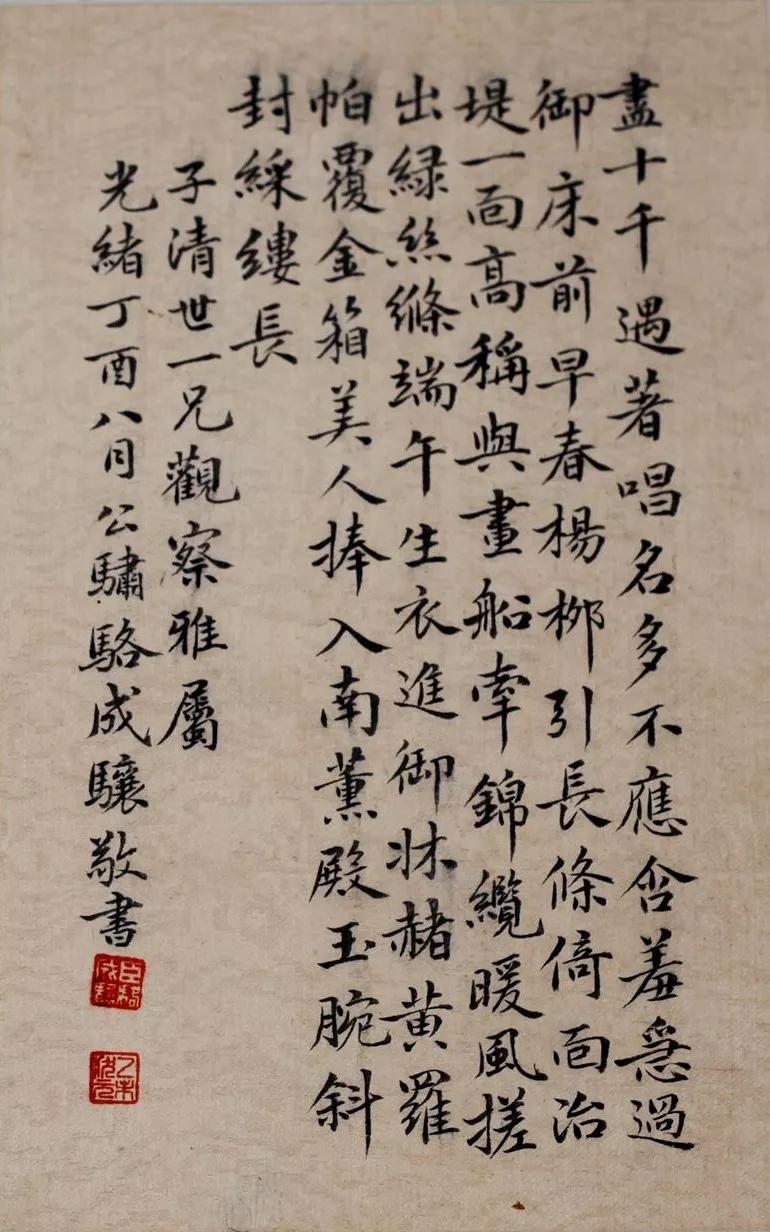 盡十千遇著唱名多不應含羞急過
御床前早春楊柳引長條倚面沿
堤一面高稱與畫船牽錦纜暖風搓
出緑絲絛端午生衣進御牀赭黃羅
帕覆金箱美人捧入南薰殿玉腕斜
封綵縷長
子清世一兄觀察雅屬
光緒丁酉八月公驌駱成驤敬書
臣駱成驤
乙未狀元